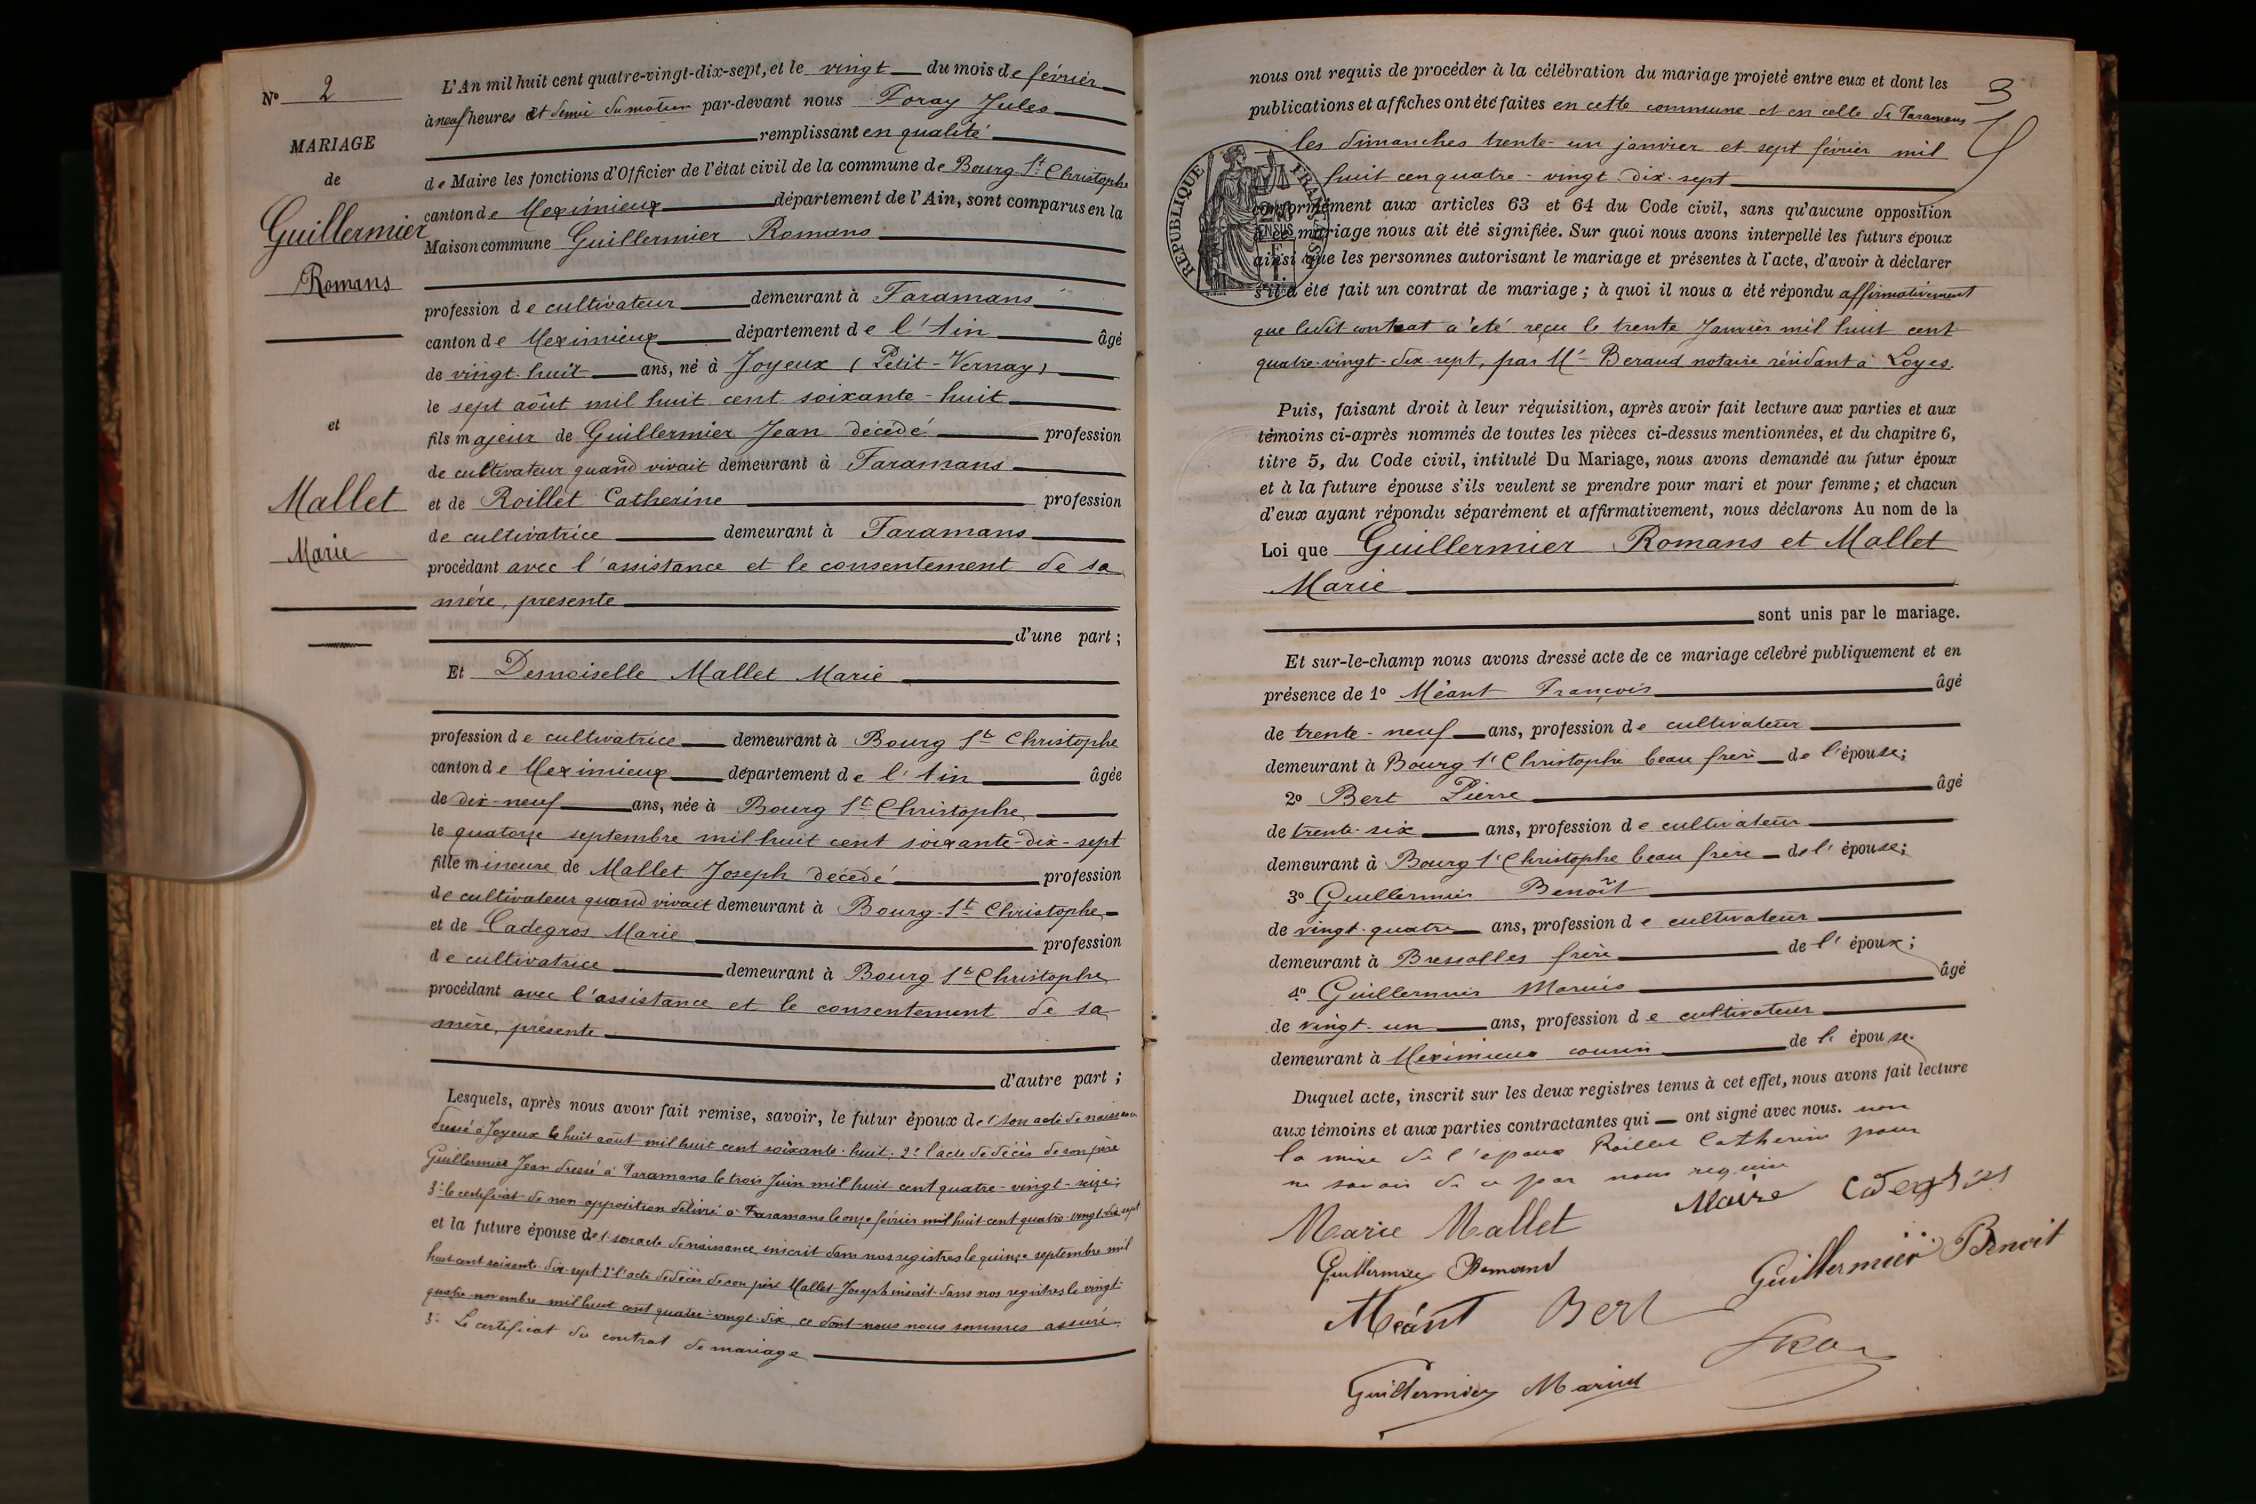 N° 2
MARIAGE
de
Guillermier
Romans
et
Mallet
Marie
L'An mil huit cent quatre-vingt-dix-sept, et le vingt du mois de février
à neuf heures et demie du matin par-devant nous Foray Jules
remplissant en qualité
de Maire les fonctions d'Officier de l'état civil de la commune de Bourg St Christophe
canton de Meximieux département de l'Ain, sont comparus en la
Maison commune Guillermier Romans
profession de cultivateur demeurant à Faramans
canton de Meximieux département de l'Ain âgé
de vingt-huit ans, né à Joyeux (Petit-Vernay)
le sept août mil huit cent soixante-huit
fils majeur de Guillermier Jean décédé profession
de cultivateur quand vivait demeurant à Faramans
et de Roillet Catherine profession
de cultivatrice demeurant à Faramans
procédant avec l'assistance et le consentement de sa
mère, présente
d'une part ;
Et Demoiselle Mallet Marie
profession de cultivatrice demeurant à Bourg St Christophe
canton de Meximieux département de l'Ain âgée
de dix-neuf ans, née à Bourg St Christophe
le quatorze septembre mil huit cent soixante-dix-sept
fille mineure de Mallet Joseph décédé profession
de cultivateur quand vivait demeurant à Bourg-St Christophe
et de Cadegros Marie profession
de cultivatrice demeurant à Bourg St Christophe
procédant avec l'assistance et le consentement de sa
mère, présente
d'autre part ;
Lesquels, après nous avoir fait remise, savoir, le futur époux de 1° son acte de naissance
dressé à Joyeux le huit août mil huit cent soixante-huit ; 2° l'acte de décès de son père
Guillermier Jean dressé à Faramans le trois Juin mil huit cent quatre-vingt-seize ;
3° le certificat de non opposition délivré à Faramans le onze février mil huit cent quatre-vingt-dix-sept
et la future épouse de 1° son acte de naissance inscrit dans nos registres le quinze septembre mil
huit cent soixante-dix-sept 2° l'acte de décès de son père Mallet Joseph inscrit dans nos registres le vingt-
quatre novembre mil huit cent quatre-vingt-dix, ce dont nous nous sommes assuré.
3° Le certificat du contrat de mariage
3
nous ont requis de procéder à la célébration du mariage projeté entre eux et dont les
publications et affiches ont été faites en cette commune et en celle de Faramans
les dimanches trente-un janvier et sept février mil
huit cen quatre-vingt-dix-sept
RÉPUBLIQUE FRANÇAISE
conformément aux articles 63 et 64 du Code civil, sans qu'aucune opposition
à ce mariage nous ait été signifiée. Sur quoi nous avons interpellé les futurs époux
ainsi que les personnes autorisant le mariage et présentes à l'acte, d'avoir à déclarer
s'il a été fait un contrat de mariage ; à quoi il nous a été répondu affirmativement
que ledit contrat a été reçu le trente Janvier mil huit cent
quatre-vingt-dix-sept, par Me Beraud notaire résidant à Loyes.
Puis, faisant droit à leur réquisition, après avoir fait lecture aux parties et aux
témoins ci-après nommés de toutes les pièces ci-dessus mentionnées, et du chapitre 6,
titre 5, du Code civil, intitulé Du Mariage, nous avons demandé au futur époux
et à la future épouse s'ils veulent se prendre pour mari et pour femme ; et chacun
d'eux ayant répondu séparément et affirmativement, nous déclarons Au nom de la
Loi que Guillermier Romans et Mallet
Marie
sont unis par le mariage.
Et sur-le-champ nous avons dressé acte de ce mariage célébré publiquement et en
présence de 1° Méant François âgé
de trente-neuf ans, profession de cultivateur
demeurant à Bourg St Christophe beau frère de l'épouse ;
2° Bert Pierre âgé
de trente-six ans, profession de cultivateur
demeurant à Bourg St Christophe beau frère de l'épouse ;
3° Guillermier Benoît
de vingt-quatre ans, profession de cultivateur
demeurant à Bressolles frère de l'époux ;
4° Guillermier Marius âgé
de vingt-un ans, profession de cultivateur
demeurant à Meximieux cousin de l'épouse.
Duquel acte, inscrit sur les deux registres tenus à cet effet, nous avons fait lecture
aux témoins et aux parties contractantes qui ont signé avec nous. non
la mère de l'époux Roillet Catherine pour
ne savoir de ce par nous requise
Marie Mallet Marie
Guillermier Romand Guillermier Benoit
Méant Bert
Guillermier Marius